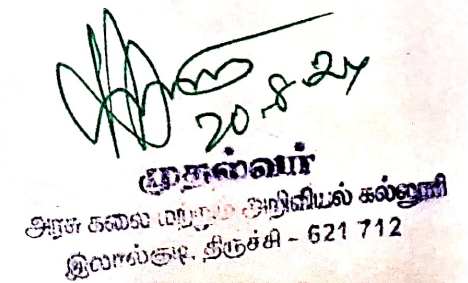 20.8.24
முதல்வர்
அரசு கலை மற்றும் அறிவியல் கல்லூரி
இலால்குடி, திருச்சி - 621 712